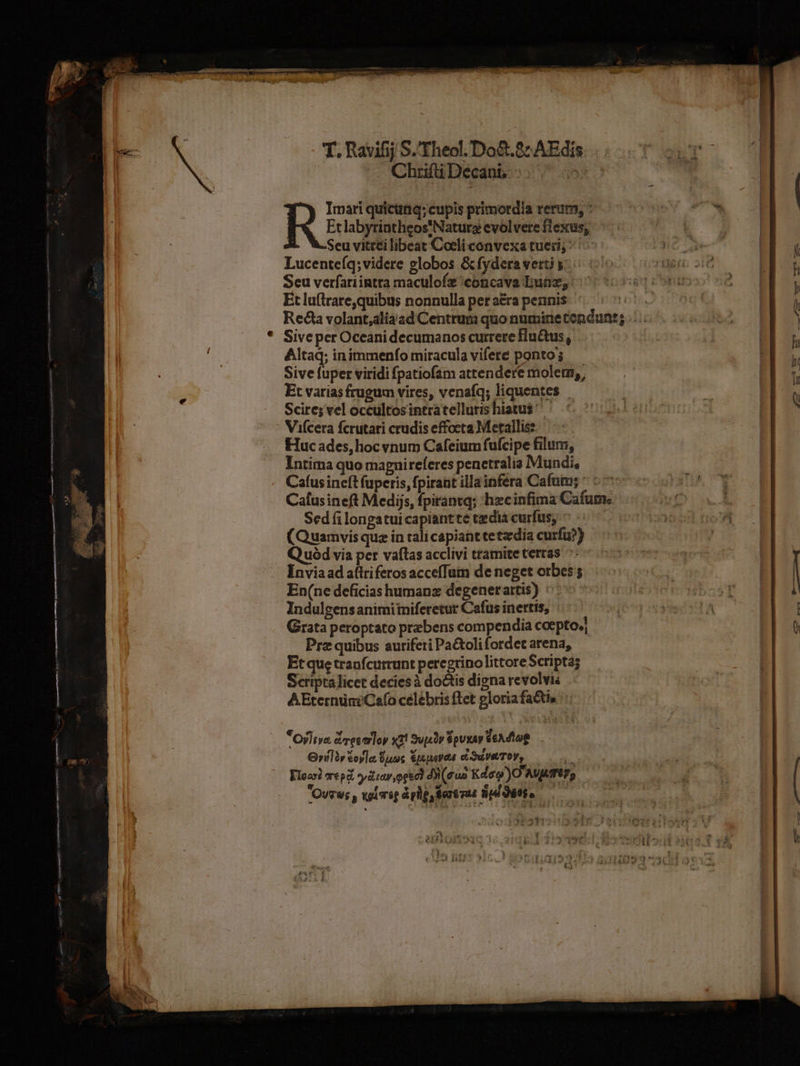 T. Ravisij S. Theol. Doct. & AEdis
Christi Decani.
RImari quicunq; cupis primordia rerum,
Et labyrintheos Naturæ evolvere flexus,
Seu vitrei libeat Cœli convexa tueri,
Lucentesq; videre globos & sydera verti;
Seu versari intra maculosæ concava Lunæ,
Et lustrare, quibus nonnulla per aëra pennis
Recta volant, alia ad Centrum quo numine tendunt;
* Sive per Oceani decumanos currere fluctus,
Altaq; in immenso miracula visere ponto;
Sive super viridi spatiosam attendere molem,
Et varias frugum vires, venasq; liquentes
Scire; vel occultos intra telluris hiatus
Viscera scrutari crudis effœta Metallis:
Huc ades, hoc vnum Caseium suscipe filum,
Intima quo magni reseres penetralia Mundi,
Casus inest superis, spirant illa infera Casum;
Casus inest Medijs, spirantq; hæc infima Casum.
Sed si longa tui capiant te tædia cursus,
(Quamvis quæ in tali capiant te tædia cursu?)
Quòd via per vastas acclivi tramite terras
Invia ad astriferos accessum deneget orbes;
En (ne deficias humanæ degener artis)
Indulgens animi miseretur Casus inertis,
Grata peroptato præbens compendia cœpto.
Præ quibus auriferi Pactoli sordet arena,
Et quę transcurrunt peregrino littore Scripta;
Scripta licet decies à doctis digna revolvis
AEternùm Caso celebris stet gloria factis.